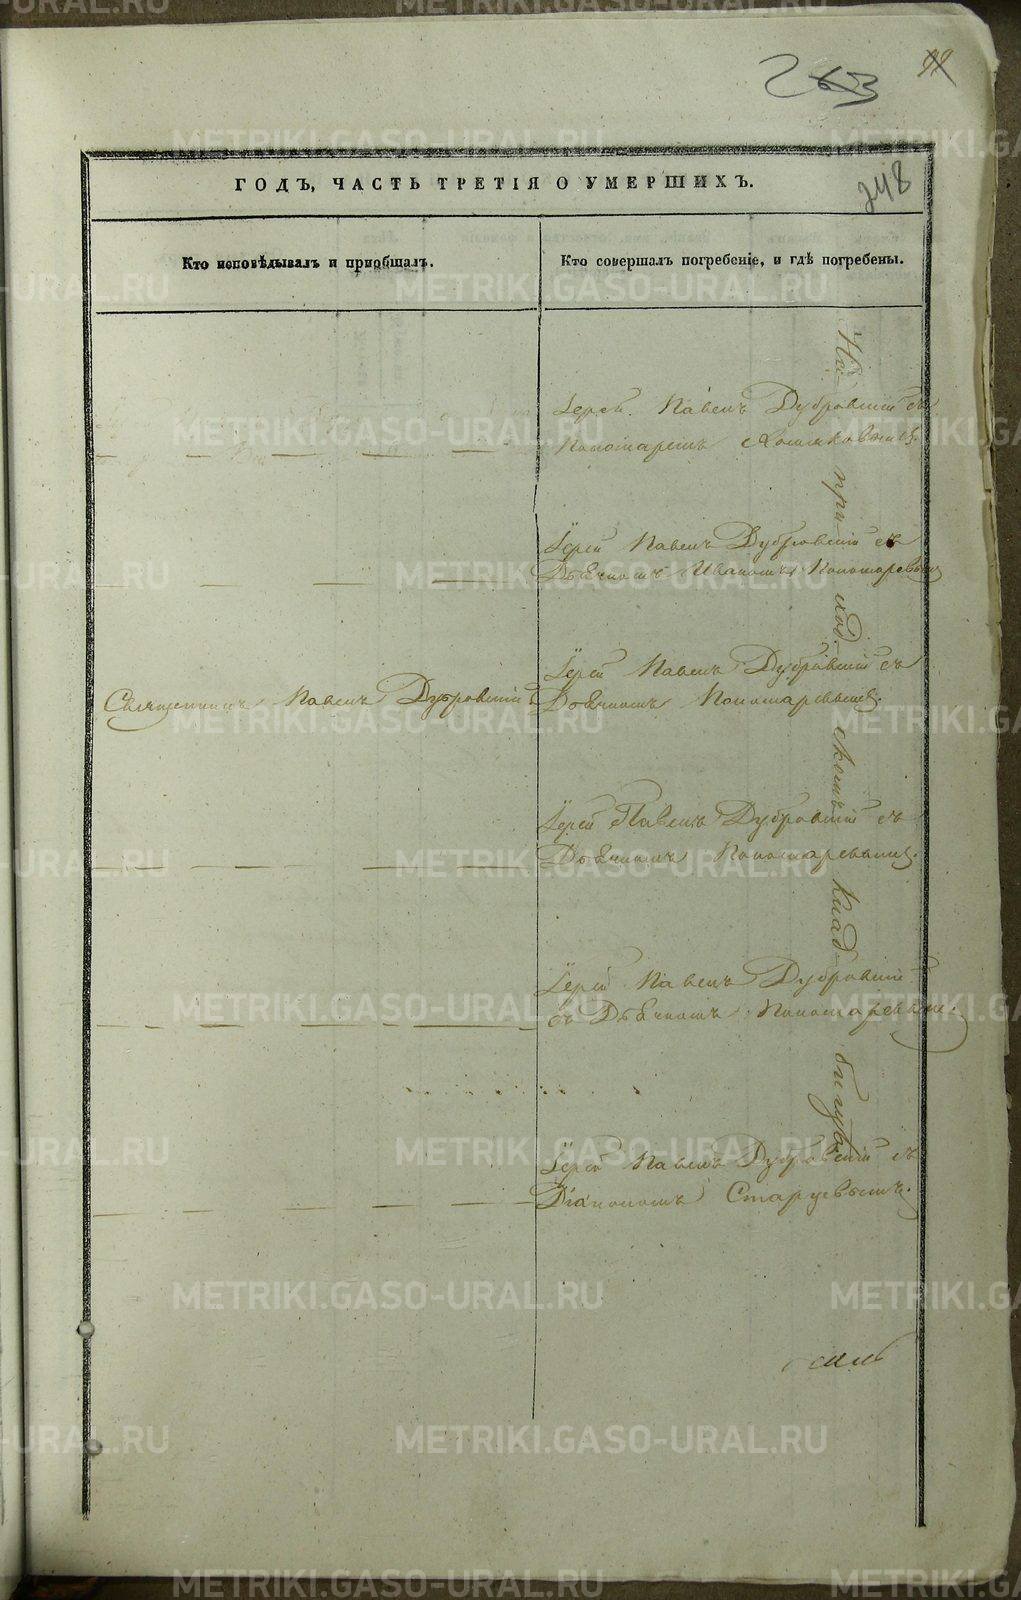 263
99
248
ГОДЪ, ЧАСТЬ ТРЕТІЯ О УМЕРШИХЪ.
Кто исповѣдывалъ и приобщалъ.
Кто совершалъ погребеніе, и гдѣ погребены.
Іерей Павелъ Дубровскій съ
Пономаремъ Хомяковымъ.
Іерей Павелъ Дубровскій съ
Дьячкомъ Иваномъ Пономаревымъ
Священникъ Павелъ Дубровскій
Іерей Павелъ Дубровскій съ
Дьячкомъ Пономаревымъ.
Іерей Павелъ Дубровскій съ
Дьячкомъ Пономаревымъ.
Іерей Павелъ Дубровскій
съ Дьячкомъ Пономаревымъ
Іерей Павелъ Дубровскій съ
Діакономъ Старцевымъ.
На при ход скомъ клад бищѣ
METRIKI.GASO-URAL.RU